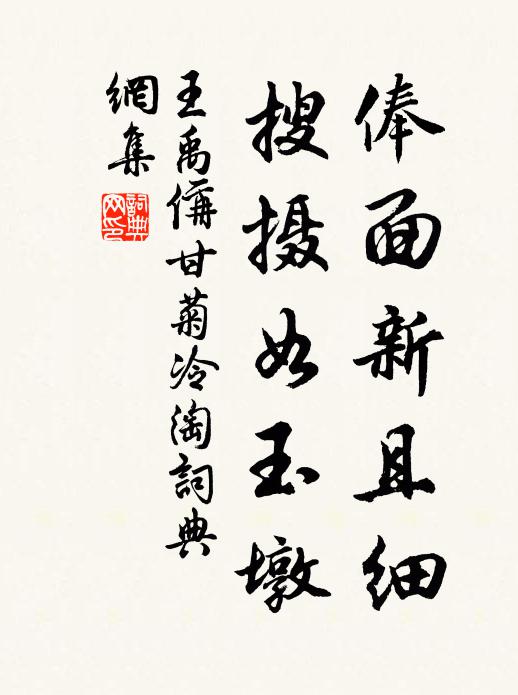 俸面新且细
搜摄如玉墩
王禹偁甘菊冷淘詞典
網集
詞典
网印